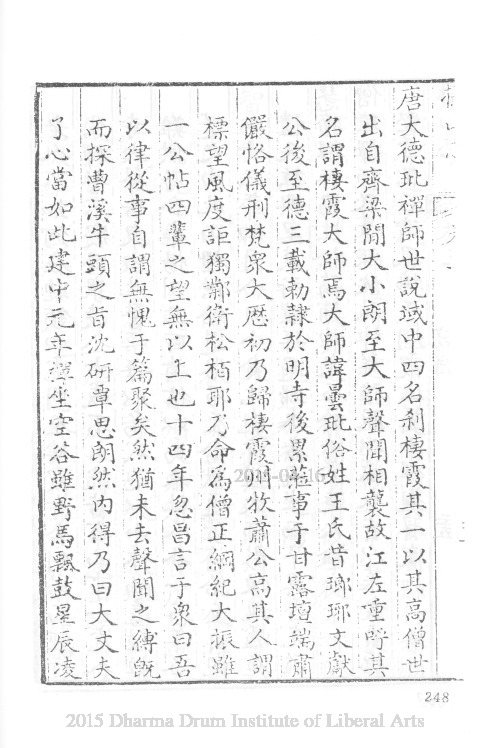 唐大德毗禪師世說域中四名刹棲霞其一以其高僧世
出自齊梁間大小朗至大師聲聞相襲故江左重呼其
名謂棲霞大師焉大師諱曇毗俗姓王氏昔瑯琊文獻
公後至德三載勅隸於明寺後累蒞事于甘露壇端肅
儼恪儀刑梵衆大歷初乃歸棲霞州牧蕭公高其人謂
標望風度詎獨鄰衛松栢耶乃命為僧正綱紀大振雖
一公帖四輩之望無以上也十四年忽昌言于衆曰吾
以律從事自謂無愧于篇聚矣然猶未去聲聞之縛旣
而探曹溪牛頭之旨沈研覃思朗然內得乃曰大丈夫
了心當如此建中元年禪坐空谷雖野馬飄鼓星辰凌
248
2015 Dharma Drum Institute of Liberal Arts